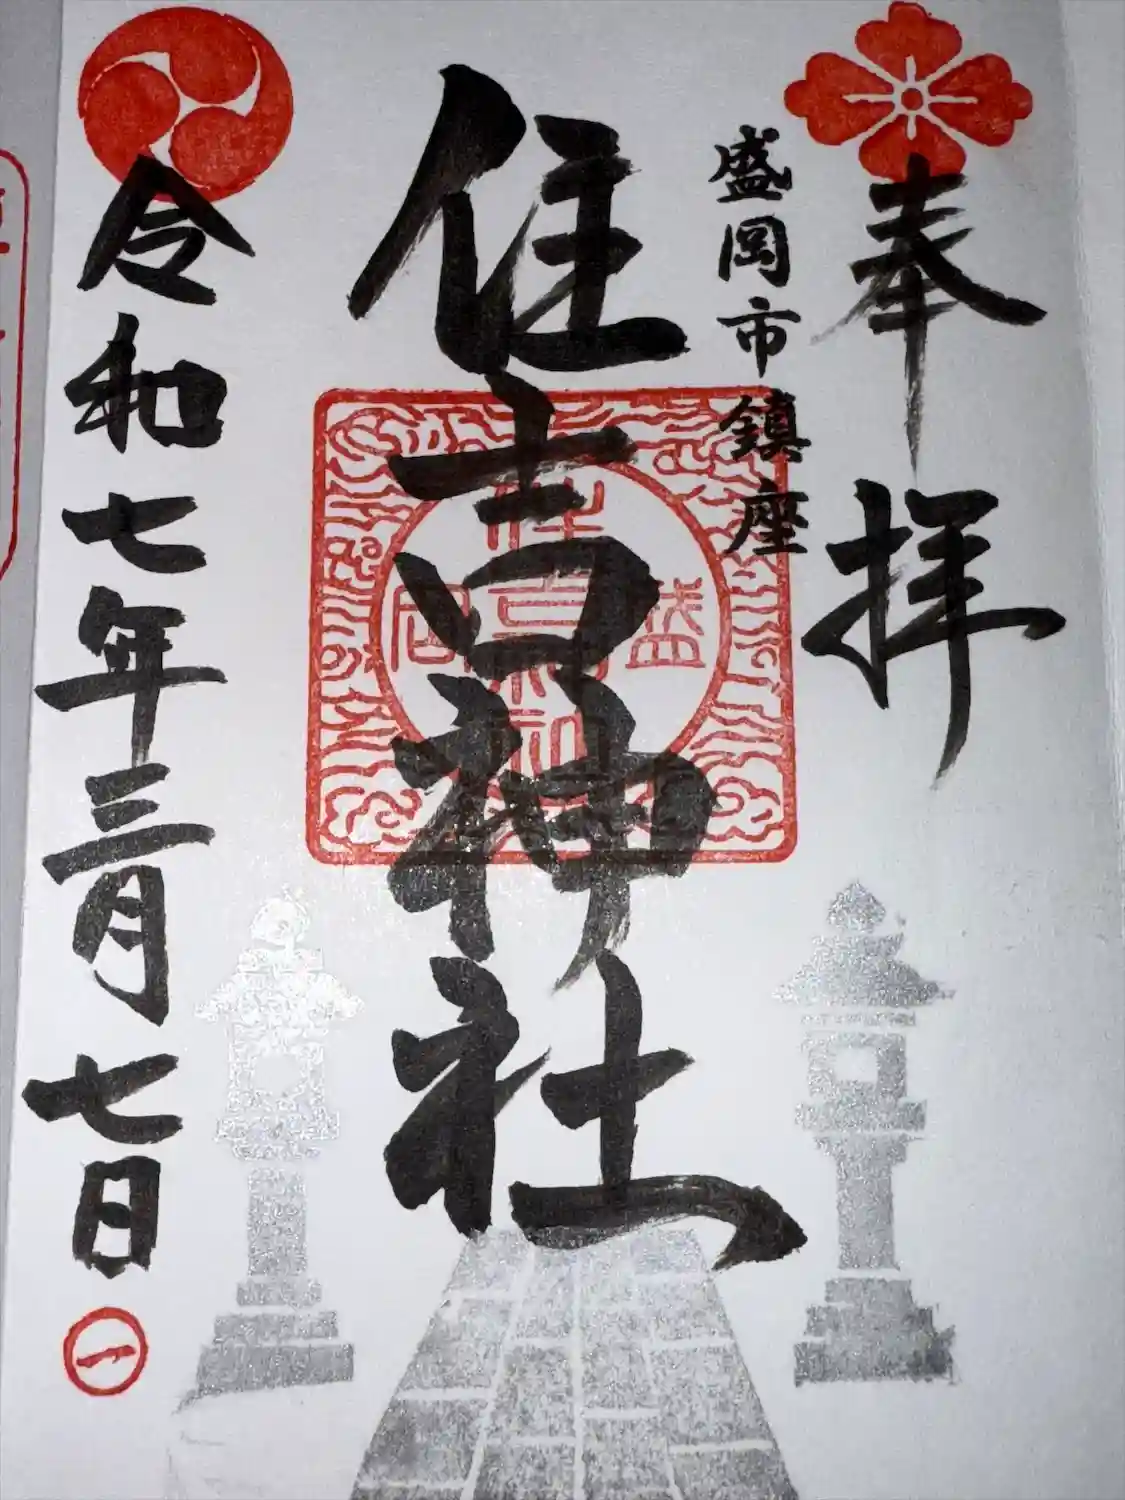 奉拝
盛岡市鎮座
住吉神社
盛岡
住吉神社
令和七年三月七日
一